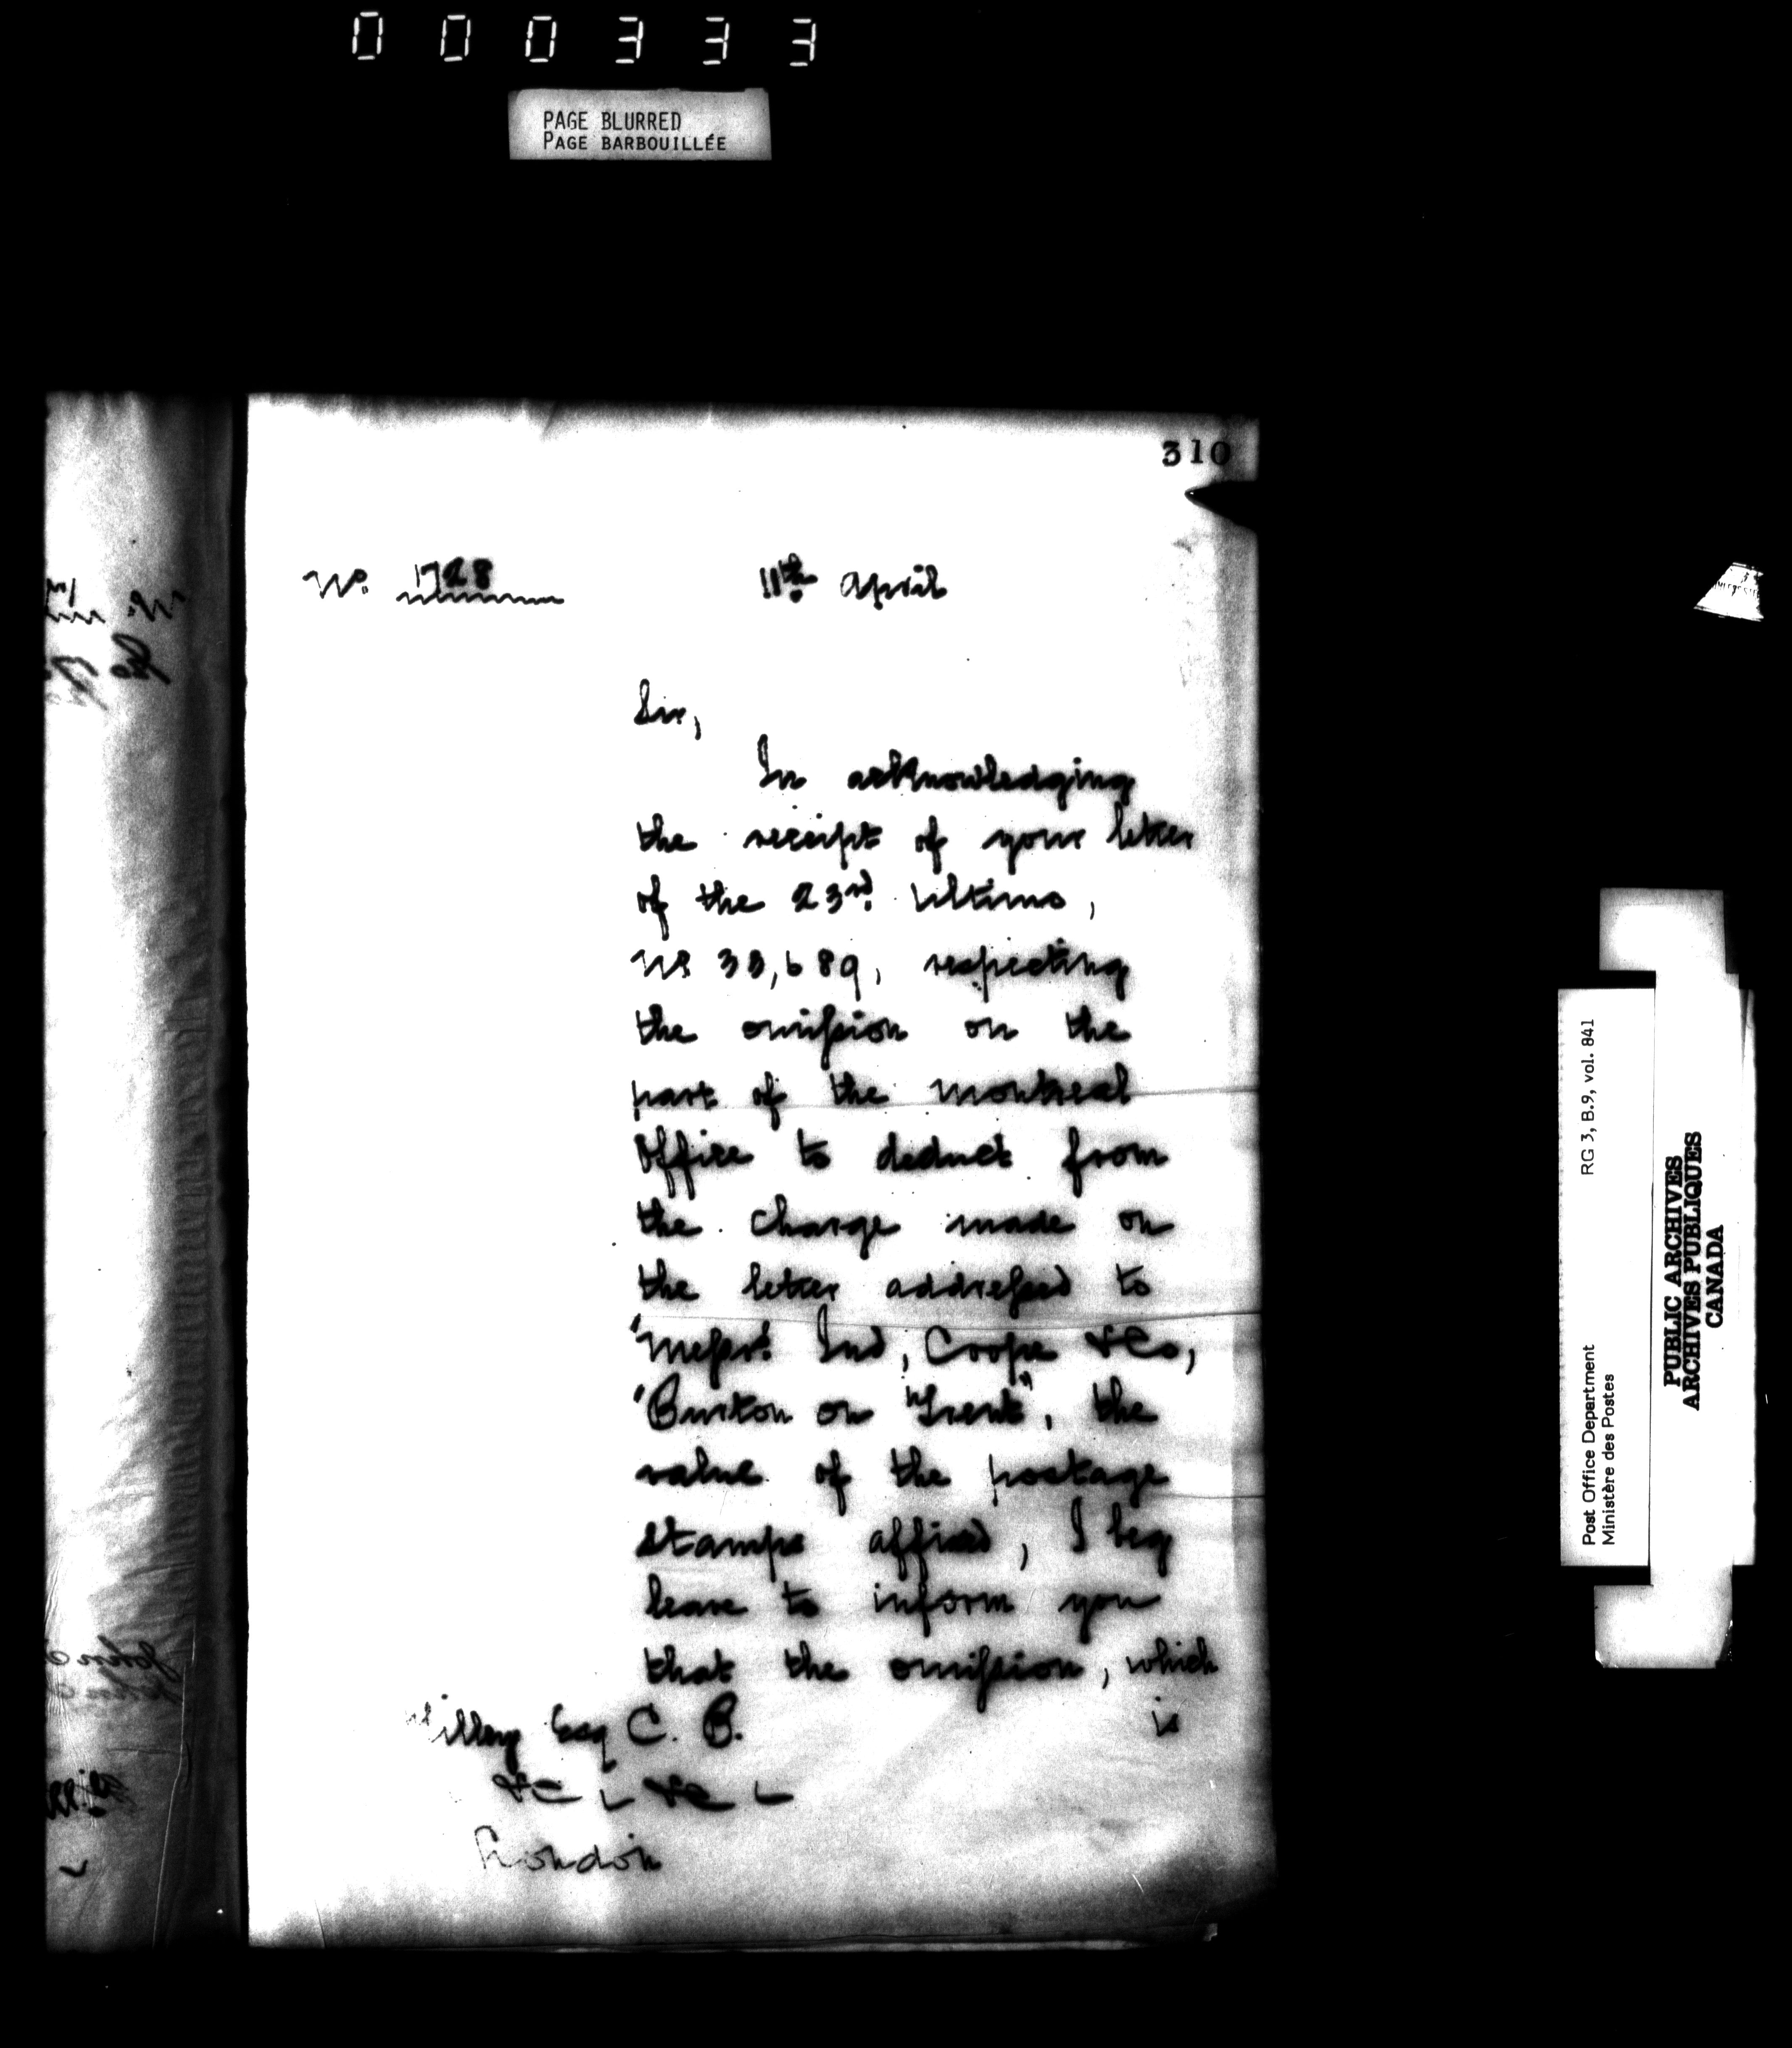 000333
PAGE BLURRED
PAGE BARBOUILLÉE
310
No. 1728 11th April
Sir,
In acknowledging
the receipt of your letter
of the 23rd. Ultimo,
No 33,689, respecting
the omission on the
part of the Montreal
Office to deduct from
the charge made on
the letter addressed to
"Messrs. Ind, Coope & Co,
"Burton on "Trent", the
value of the postage
stamps affixed, I beg
leave to inform you
that the omission, which
is
Esq C. B.
&c &c
London
RG 3, B.9, vol. 841
Post Office Department
Ministère des Postes
PUBLIC ARCHIVES
ARCHIVES PUBLIQUES
CANADA